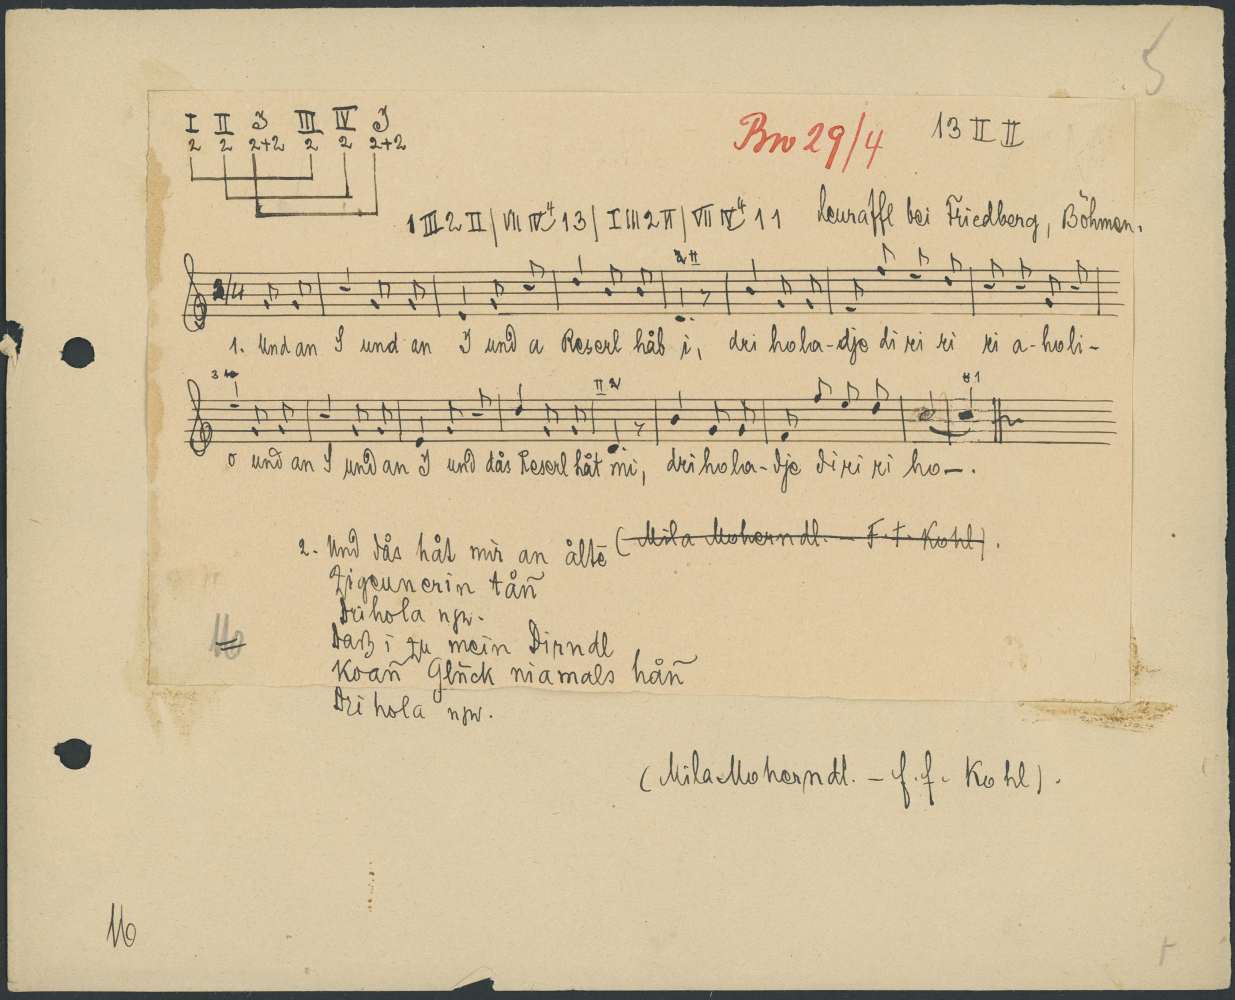 5
I II J III IV J
2 2 2+2 2 2 2+2
Bw 29/4
13 II II
1 III 2 II | VII IV 4 1 3 | I III 2 II | VII IV 4 1 1
bei Friedberg, Böhmen.
2/4
2 II
1. Und an J und an J und a Reserl håb i, dri hola-dje di ri ri ri a-holi-
3
II 2
1
o und an J und an J und dås Reserl håt mi, dri hola-dje di ri ri ho-.
2. Und dås håt mir an ålte (Mila Moherndl. - F. F. Kohl).
Zigeunerin tåñ
Dri hola usw.
Daß i zu mein Dirndl
Koañ Glück niamals håñ
Dri hola usw.
16
(Mila Moherndl. - F. F. Kohl).
16